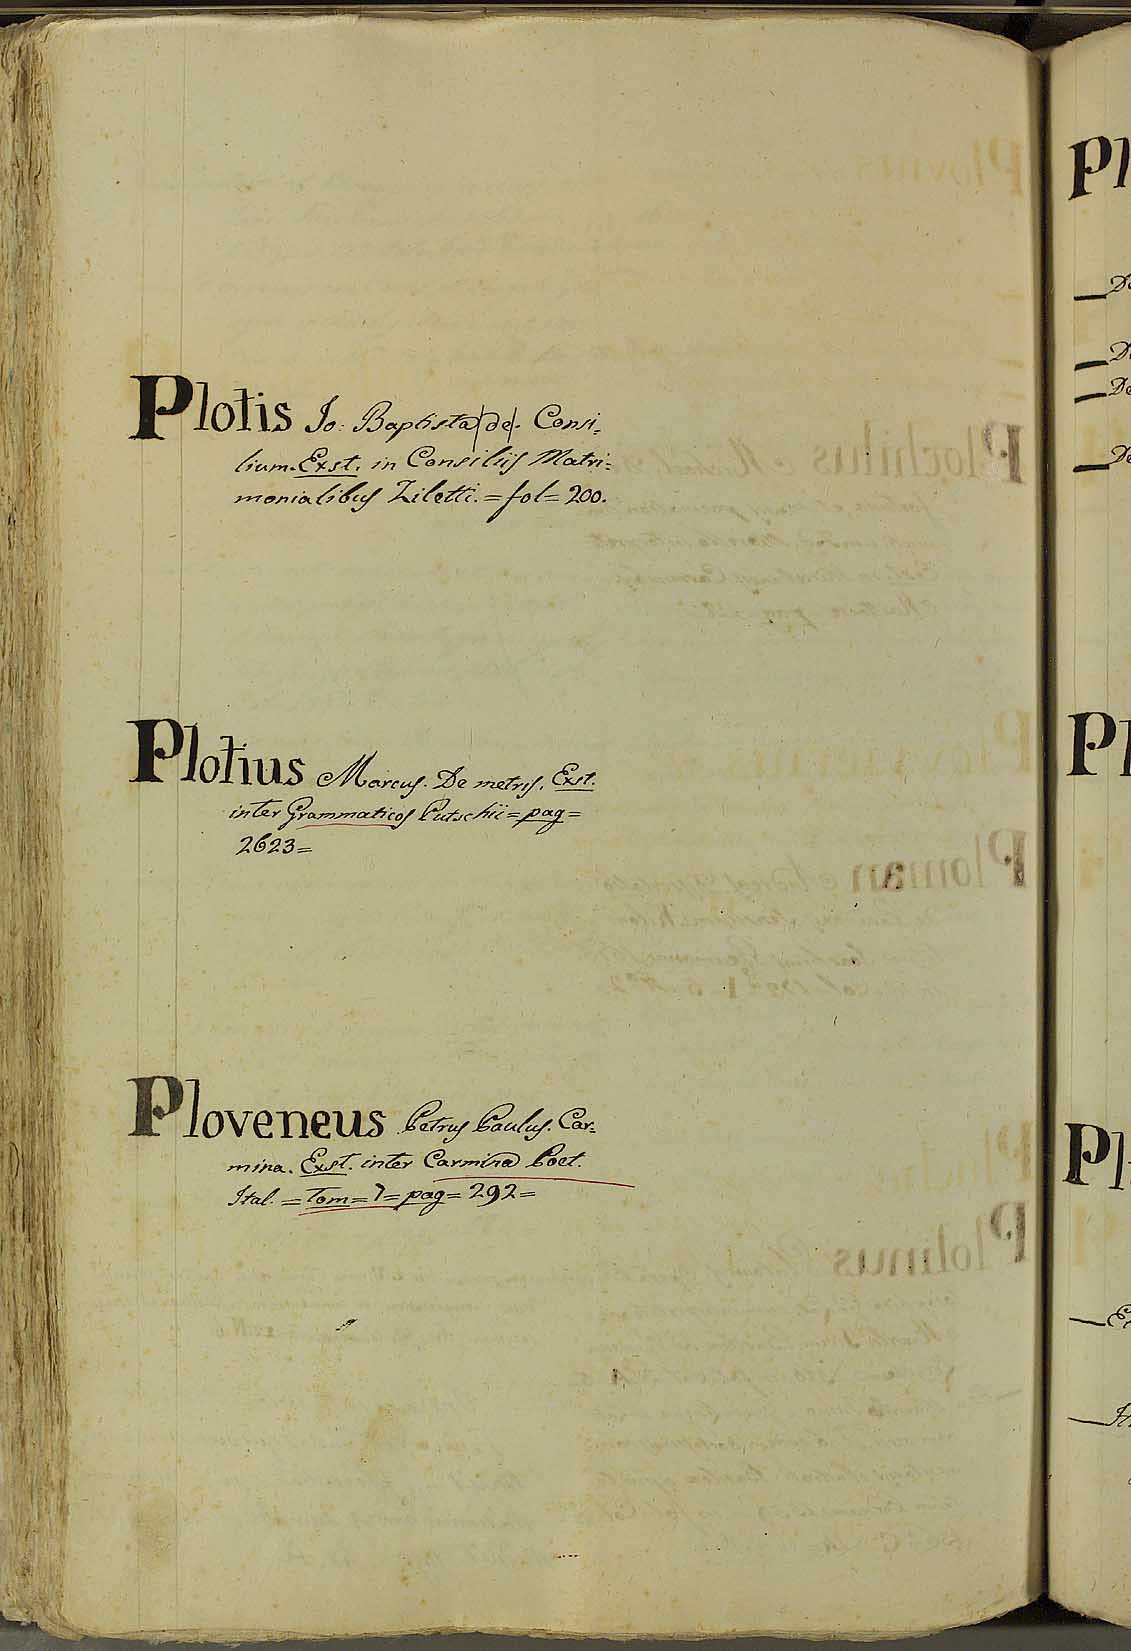 Plotis Jo: Baptista |de|. Consi=
lium. Exst. in Consiliis Matri=
monialibus Ziletti. = fol = 200.
Plotius Marcus. De metris. Exst.
inter Grammaticos Putschii = pag =
2623 =
Ploveneus Petrus Paulus. Car=
mina. Exst. inter Carmina Poet.
Ital. = Tom = 7 = pag = 292 =
Pl
De
De
De
De
Pl
Pl